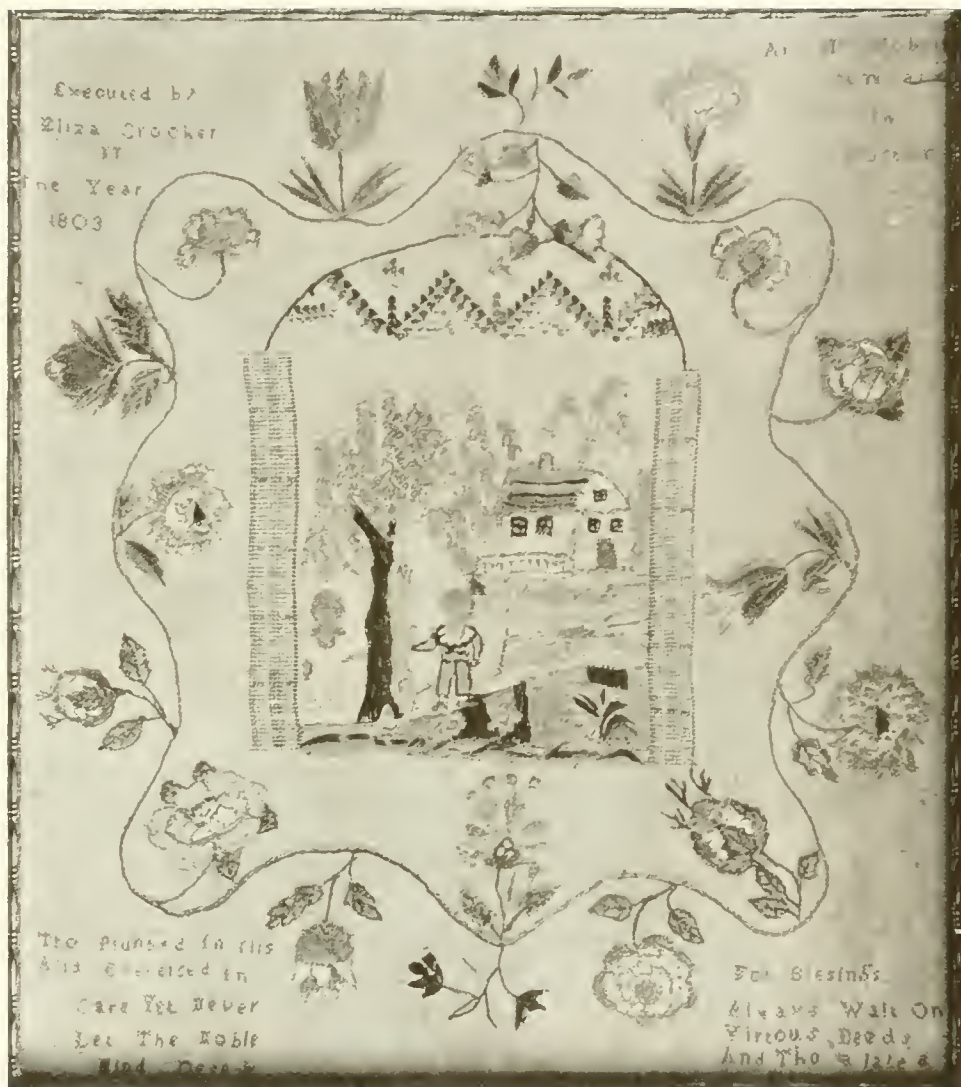 Executed by
Eliza Crocker
The Year
1803
In
Tho Plunged In Ills
And Exercised In
Care Yet Never
Let The Noble
Mind
For Blesings
Always Wait On
Virtous Deeds
And Tho a late a